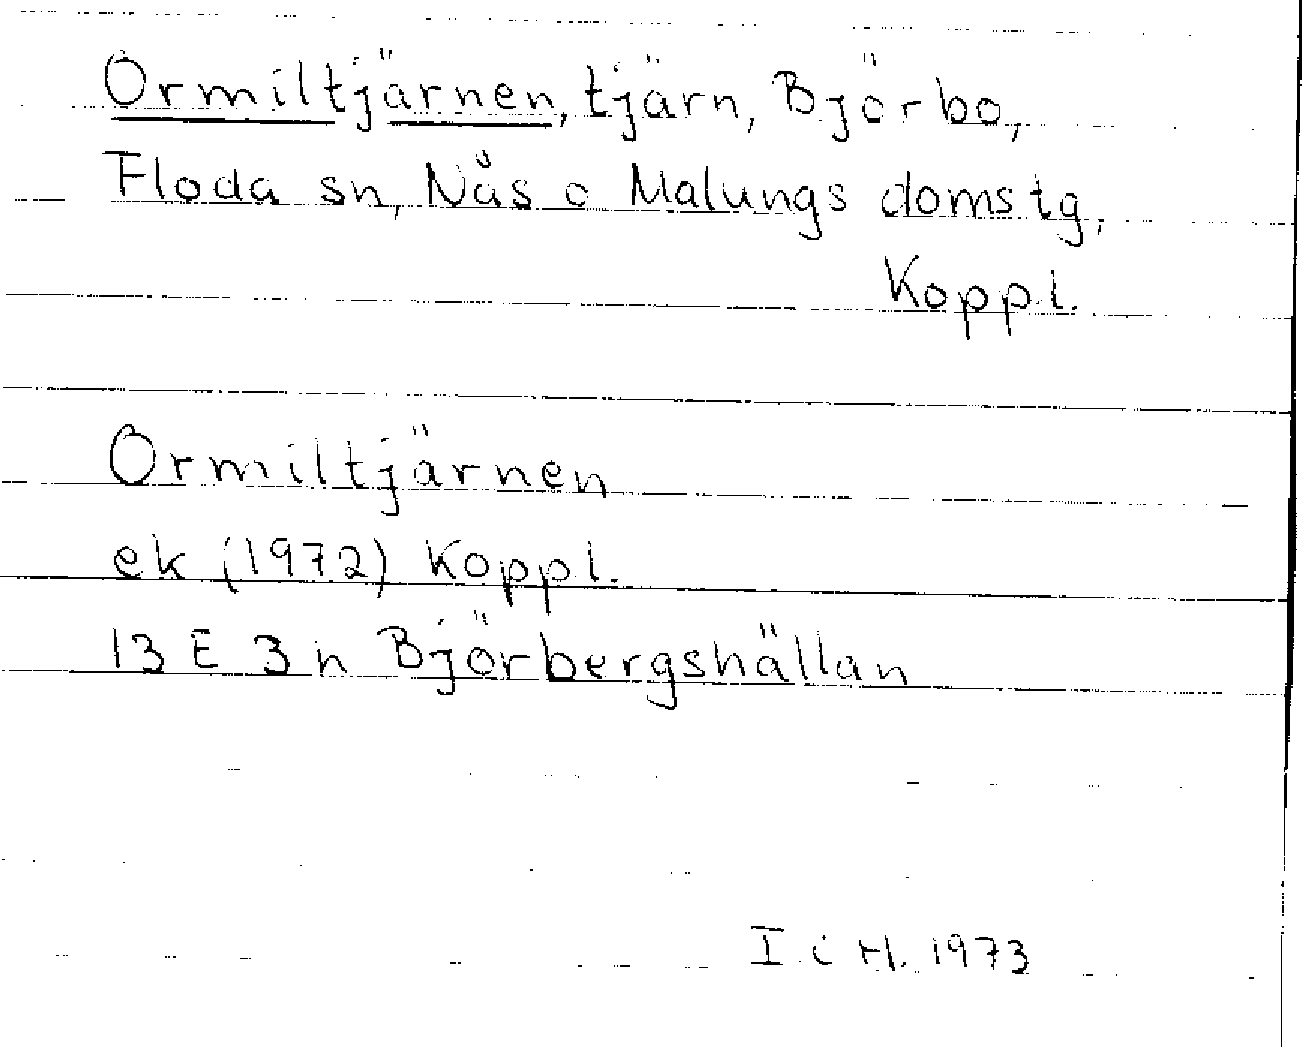 Ormiltjärnen, tjärn, Björbo,
Floda sn, Nås o Malungs domstg,
Koppl.
Ormiltjärnen
ek (1972) Koppl.
13 E 3h Björbergshällan
I i H. 1973